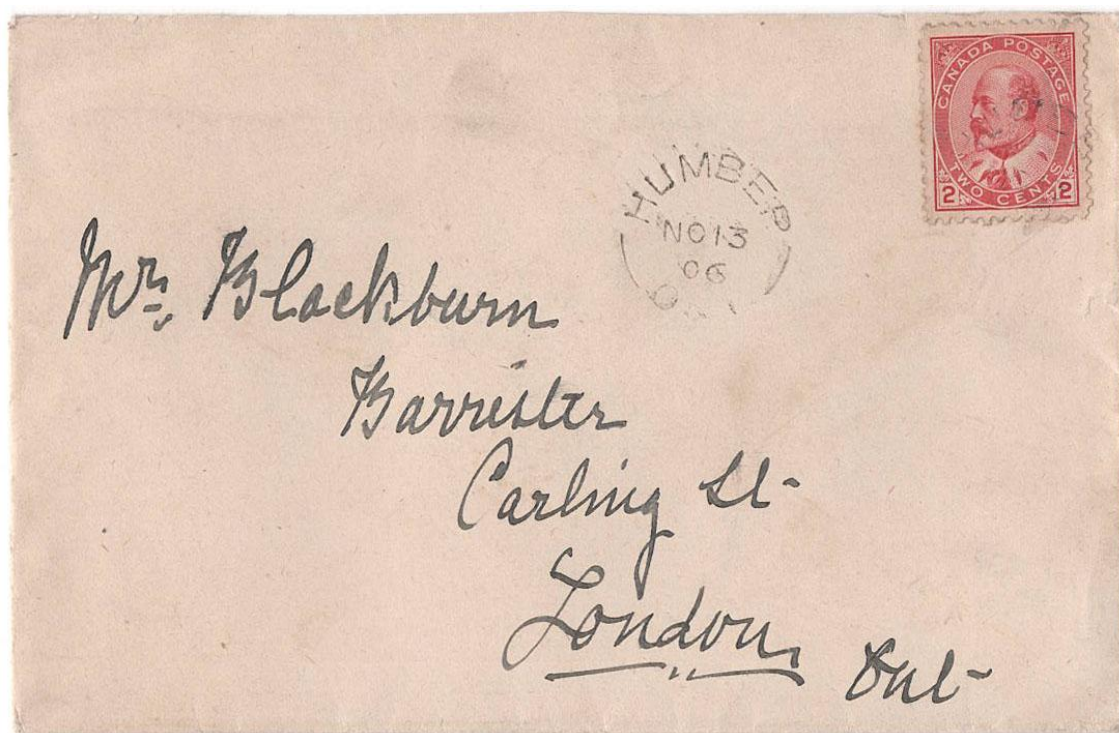 CANADA POSTAGE
TWO CENTS
2 2
HUMBER
NO 13
06
ONT
Mr. Blackburn
Barrister
Carling St-
London,
Ont-